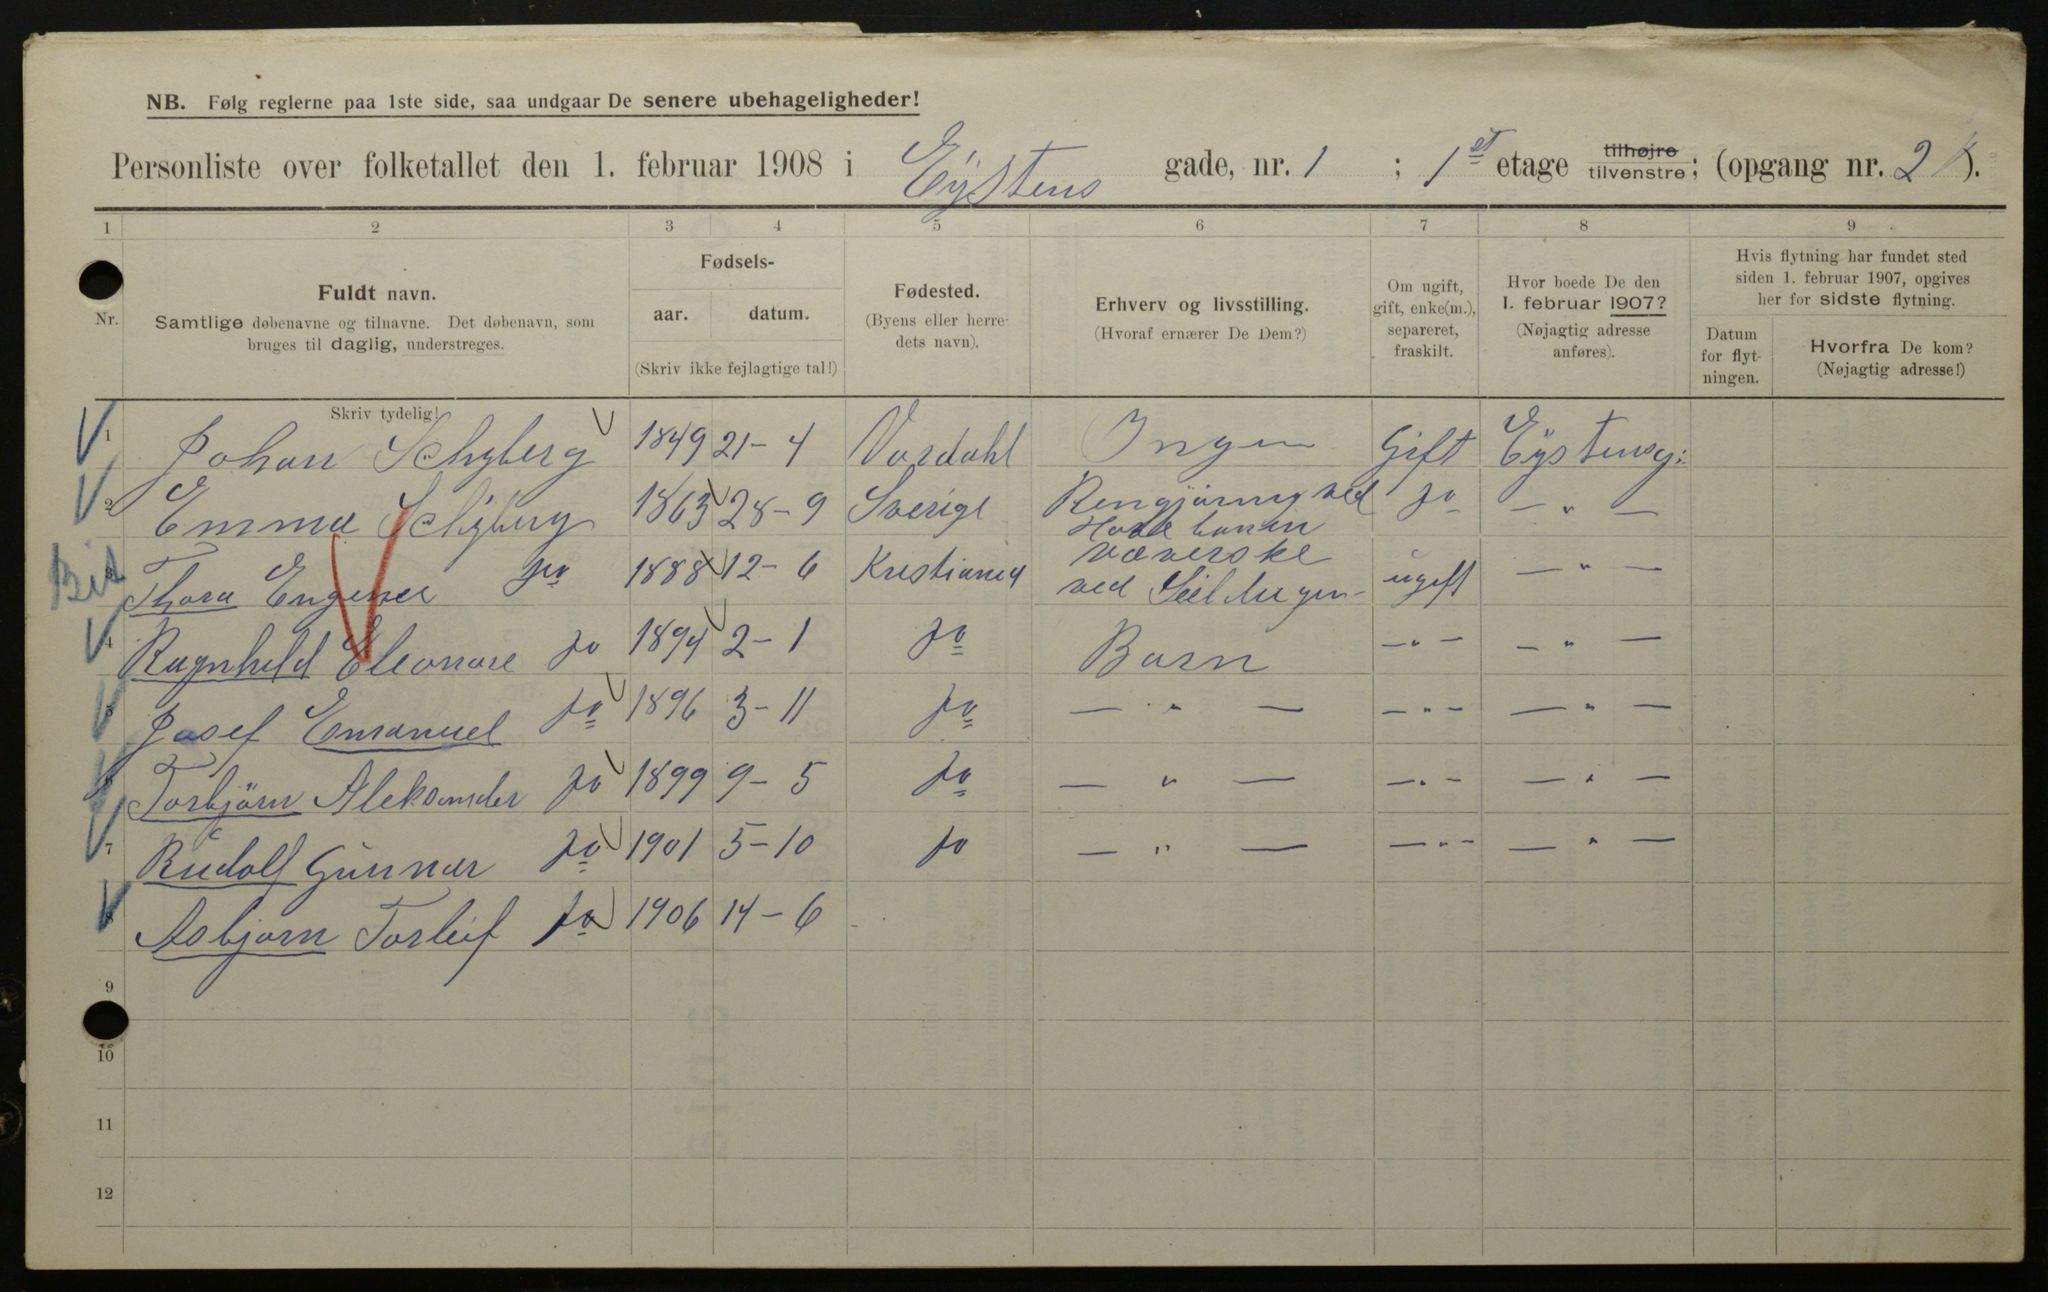 NB. Følg reglerne paa 1ste side, saa undgaar De senere ubehageligheder!
Personliste over folketallet den 1. februar 1908 i Eÿstens gade, nr. 1 ; 1st etage tilhøjre tilvenstre; (opgang nr. 2 ).
1 2 3 4 5 6 7 8 9
Nr.
Fuldt navn.
Samtlige døbenavne og tilnavne. Det døbenavn, som
bruges til daglig, understreges.
Skriv tydelig!
Fødsels-
aar. datum.
(Skriv ikke fejlagtige tal!)
Fødested.
(Byens eller herre-
dets navn).
Erhverv og livsstilling.
(Hvoraf ernærer De Dem?)
Om ugift,
gift, enke(m.),
separeret,
fraskilt.
Hvor boede De den
1. februar 1907?
(Nøjagtig adresse
anføres).
Hvis flytning har fundet sted
siden 1. februar 1907, opgives
her for sidste flytning.
Datum
for flyt-
ningen.
Hvorfra De kom?
(Nøjagtig adresse!)
1 Johan Schyberg 1849 21-4 Vardahl Ingen Gift Eÿstensg:
2 Emma Schÿberg 1863 28-9 Sverige Rengjöring ved Gift — „ —
3 Thora Engenie do 1888 12-6 Kristiania Væverske
ved ugift — „ —
4 Ragnhild Eleonore do 1894 2-1 do Barn — „ — — „ —
5 Josef Emanuel do 1896 3-11 do — „ — — „ — — „ —
6 Torbjörn Aleksander do 1899 9-5 do — „ — — „ — — „ —
7 Rudolf Gunnar do 1901 5-10 do — „ — — „ — — „ —
8 Asbjørn Torleif do 1906 14-6
9
10
11
12